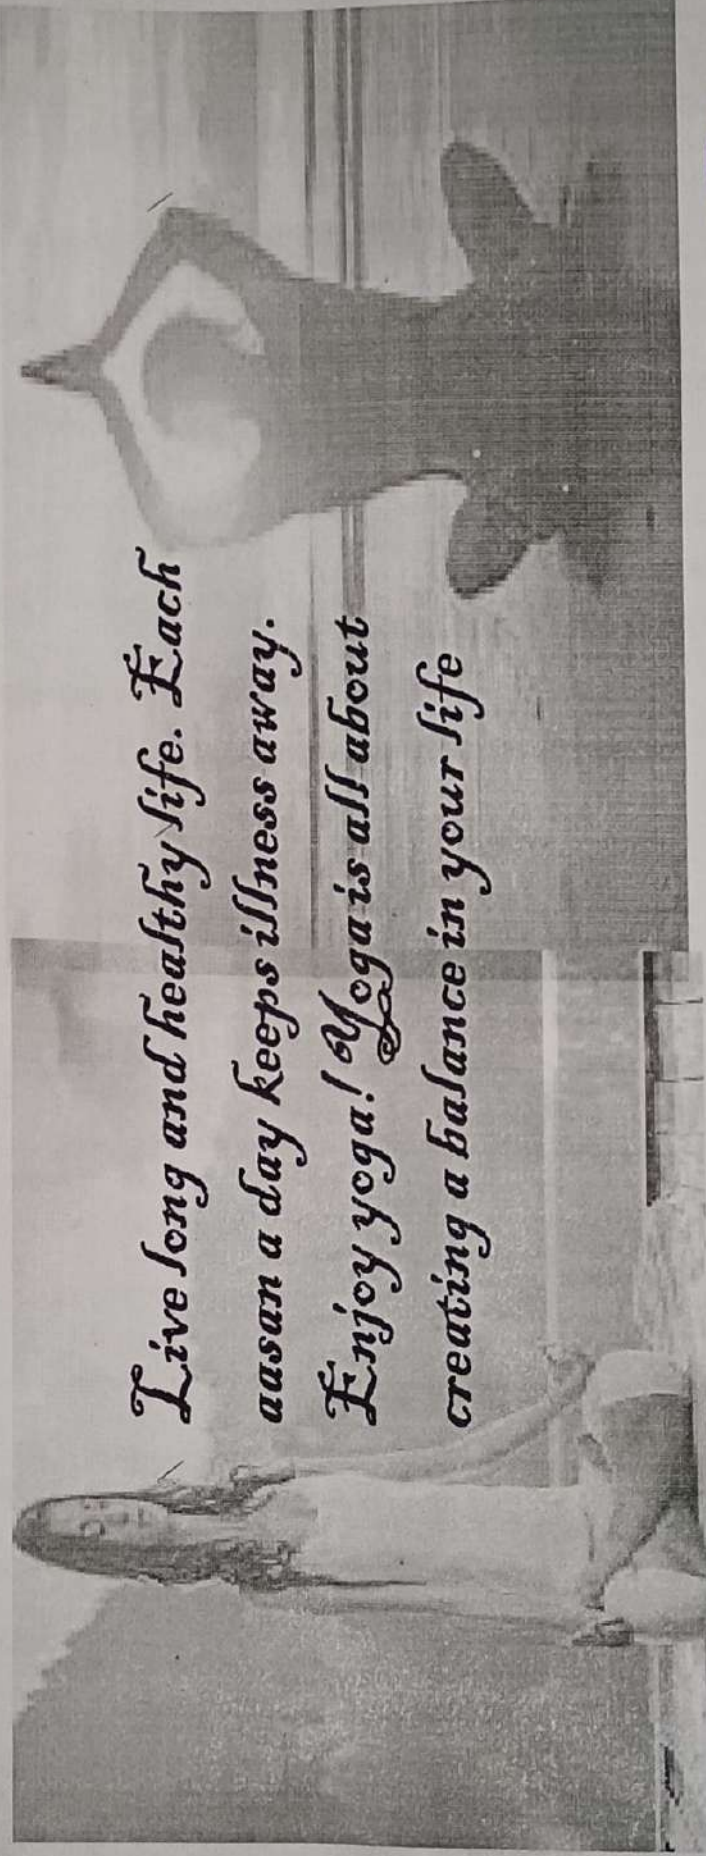 Live long and healthy life. Each
aasan a day keeps illness away.
Enjoy yoga! Yoga is all about
creating a balance in your life